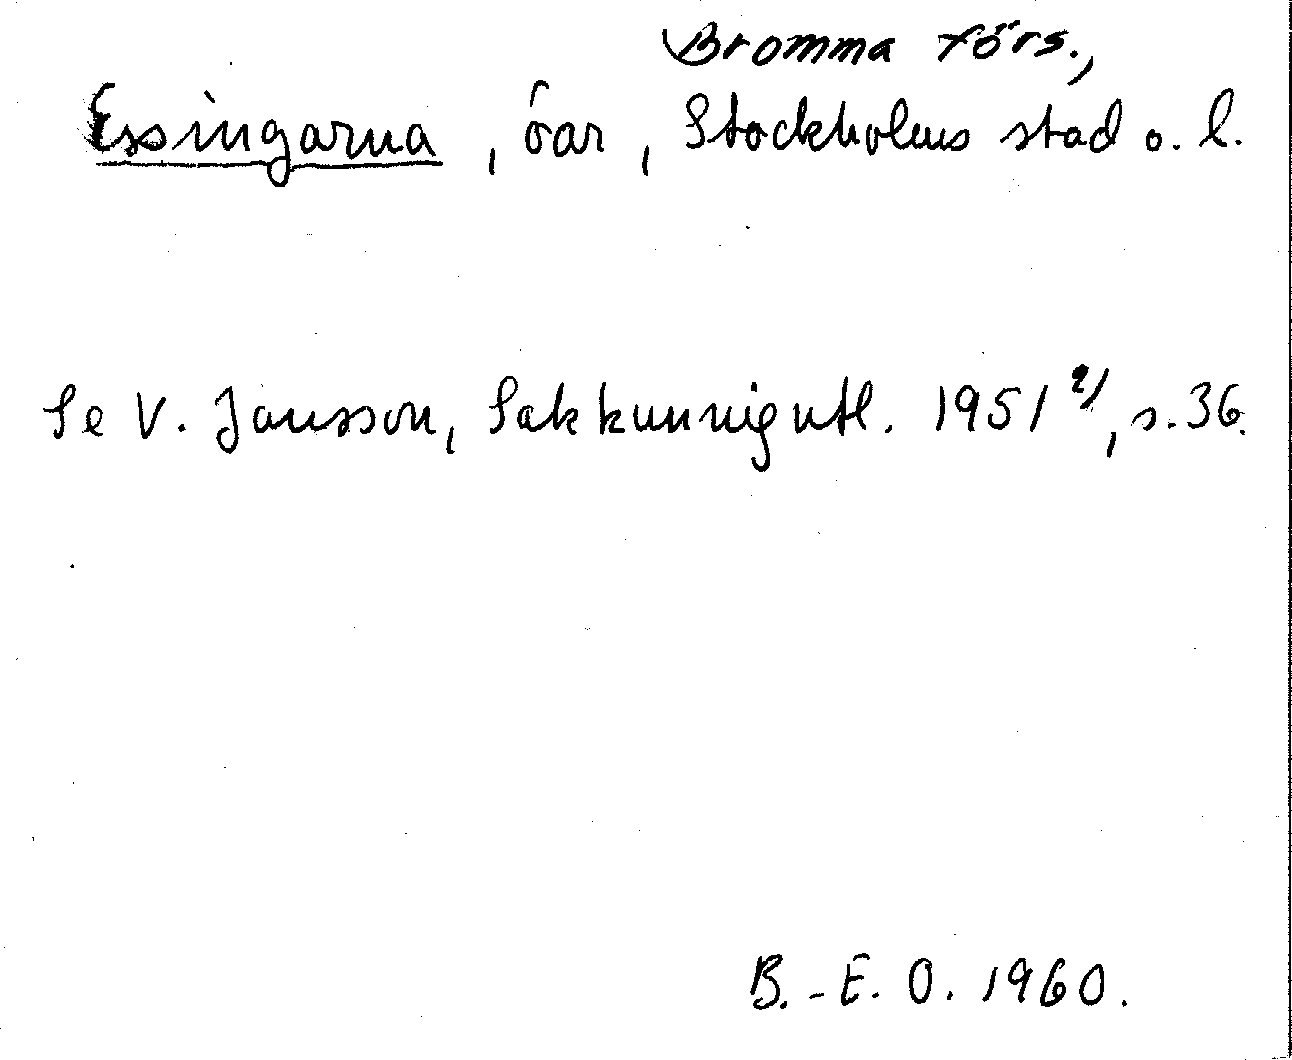 Bromma förs.,
Essingarna, öar, Stockholms stad o. l.
Se V. Jansson, Sakkunnigutl. 1951 2/, s. 36.
B.-E. O. 1960.